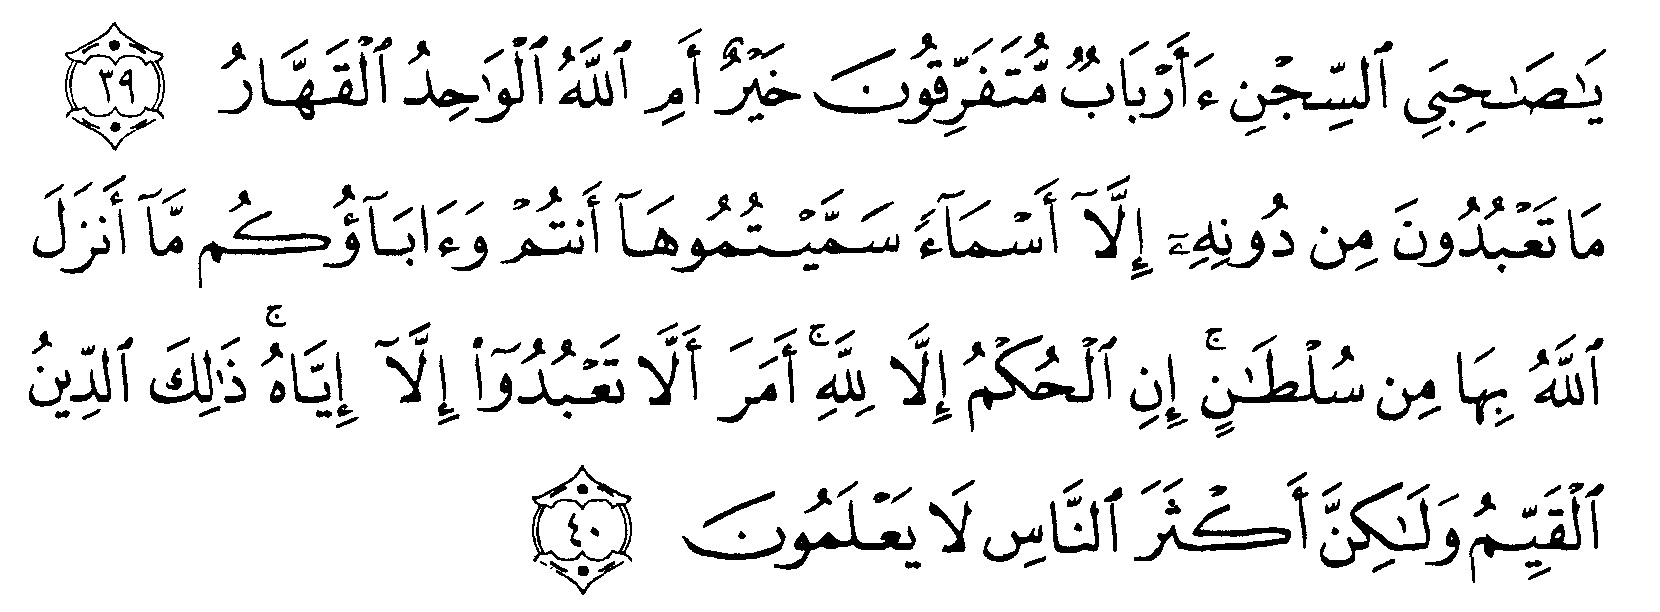 يَـٰصَـٰحِبَىِ ٱلسِّجْنِ ءَأَرْبَابٌ مُّتَفَرِّقُونَ خَيْرٌ أَمِ ٱللَّهُ ٱلْوَٰحِدُ ٱلْقَهَّارُ ٣٩
مَا تَعْبُدُونَ مِن دُونِهِۦٓ إِلَّآ أَسْمَآءً سَمَّيْتُمُوهَآ أَنتُمْ وَءَابَآؤُكُم مَّآ أَنزَلَ
ٱللَّهُ بِهَا مِن سُلْطَـٰنٍ ۚ إِنِ ٱلْحُكْمُ إِلَّا لِلَّهِ ۚ أَمَرَ أَلَّا تَعْبُدُوٓا۟ إِلَّآ إِيَّاهُ ۚ ذَٰلِكَ ٱلدِّينُ
ٱلْقَيِّمُ وَلَـٰكِنَّ أَكْثَرَ ٱلنَّاسِ لَا يَعْلَمُونَ ٤٠